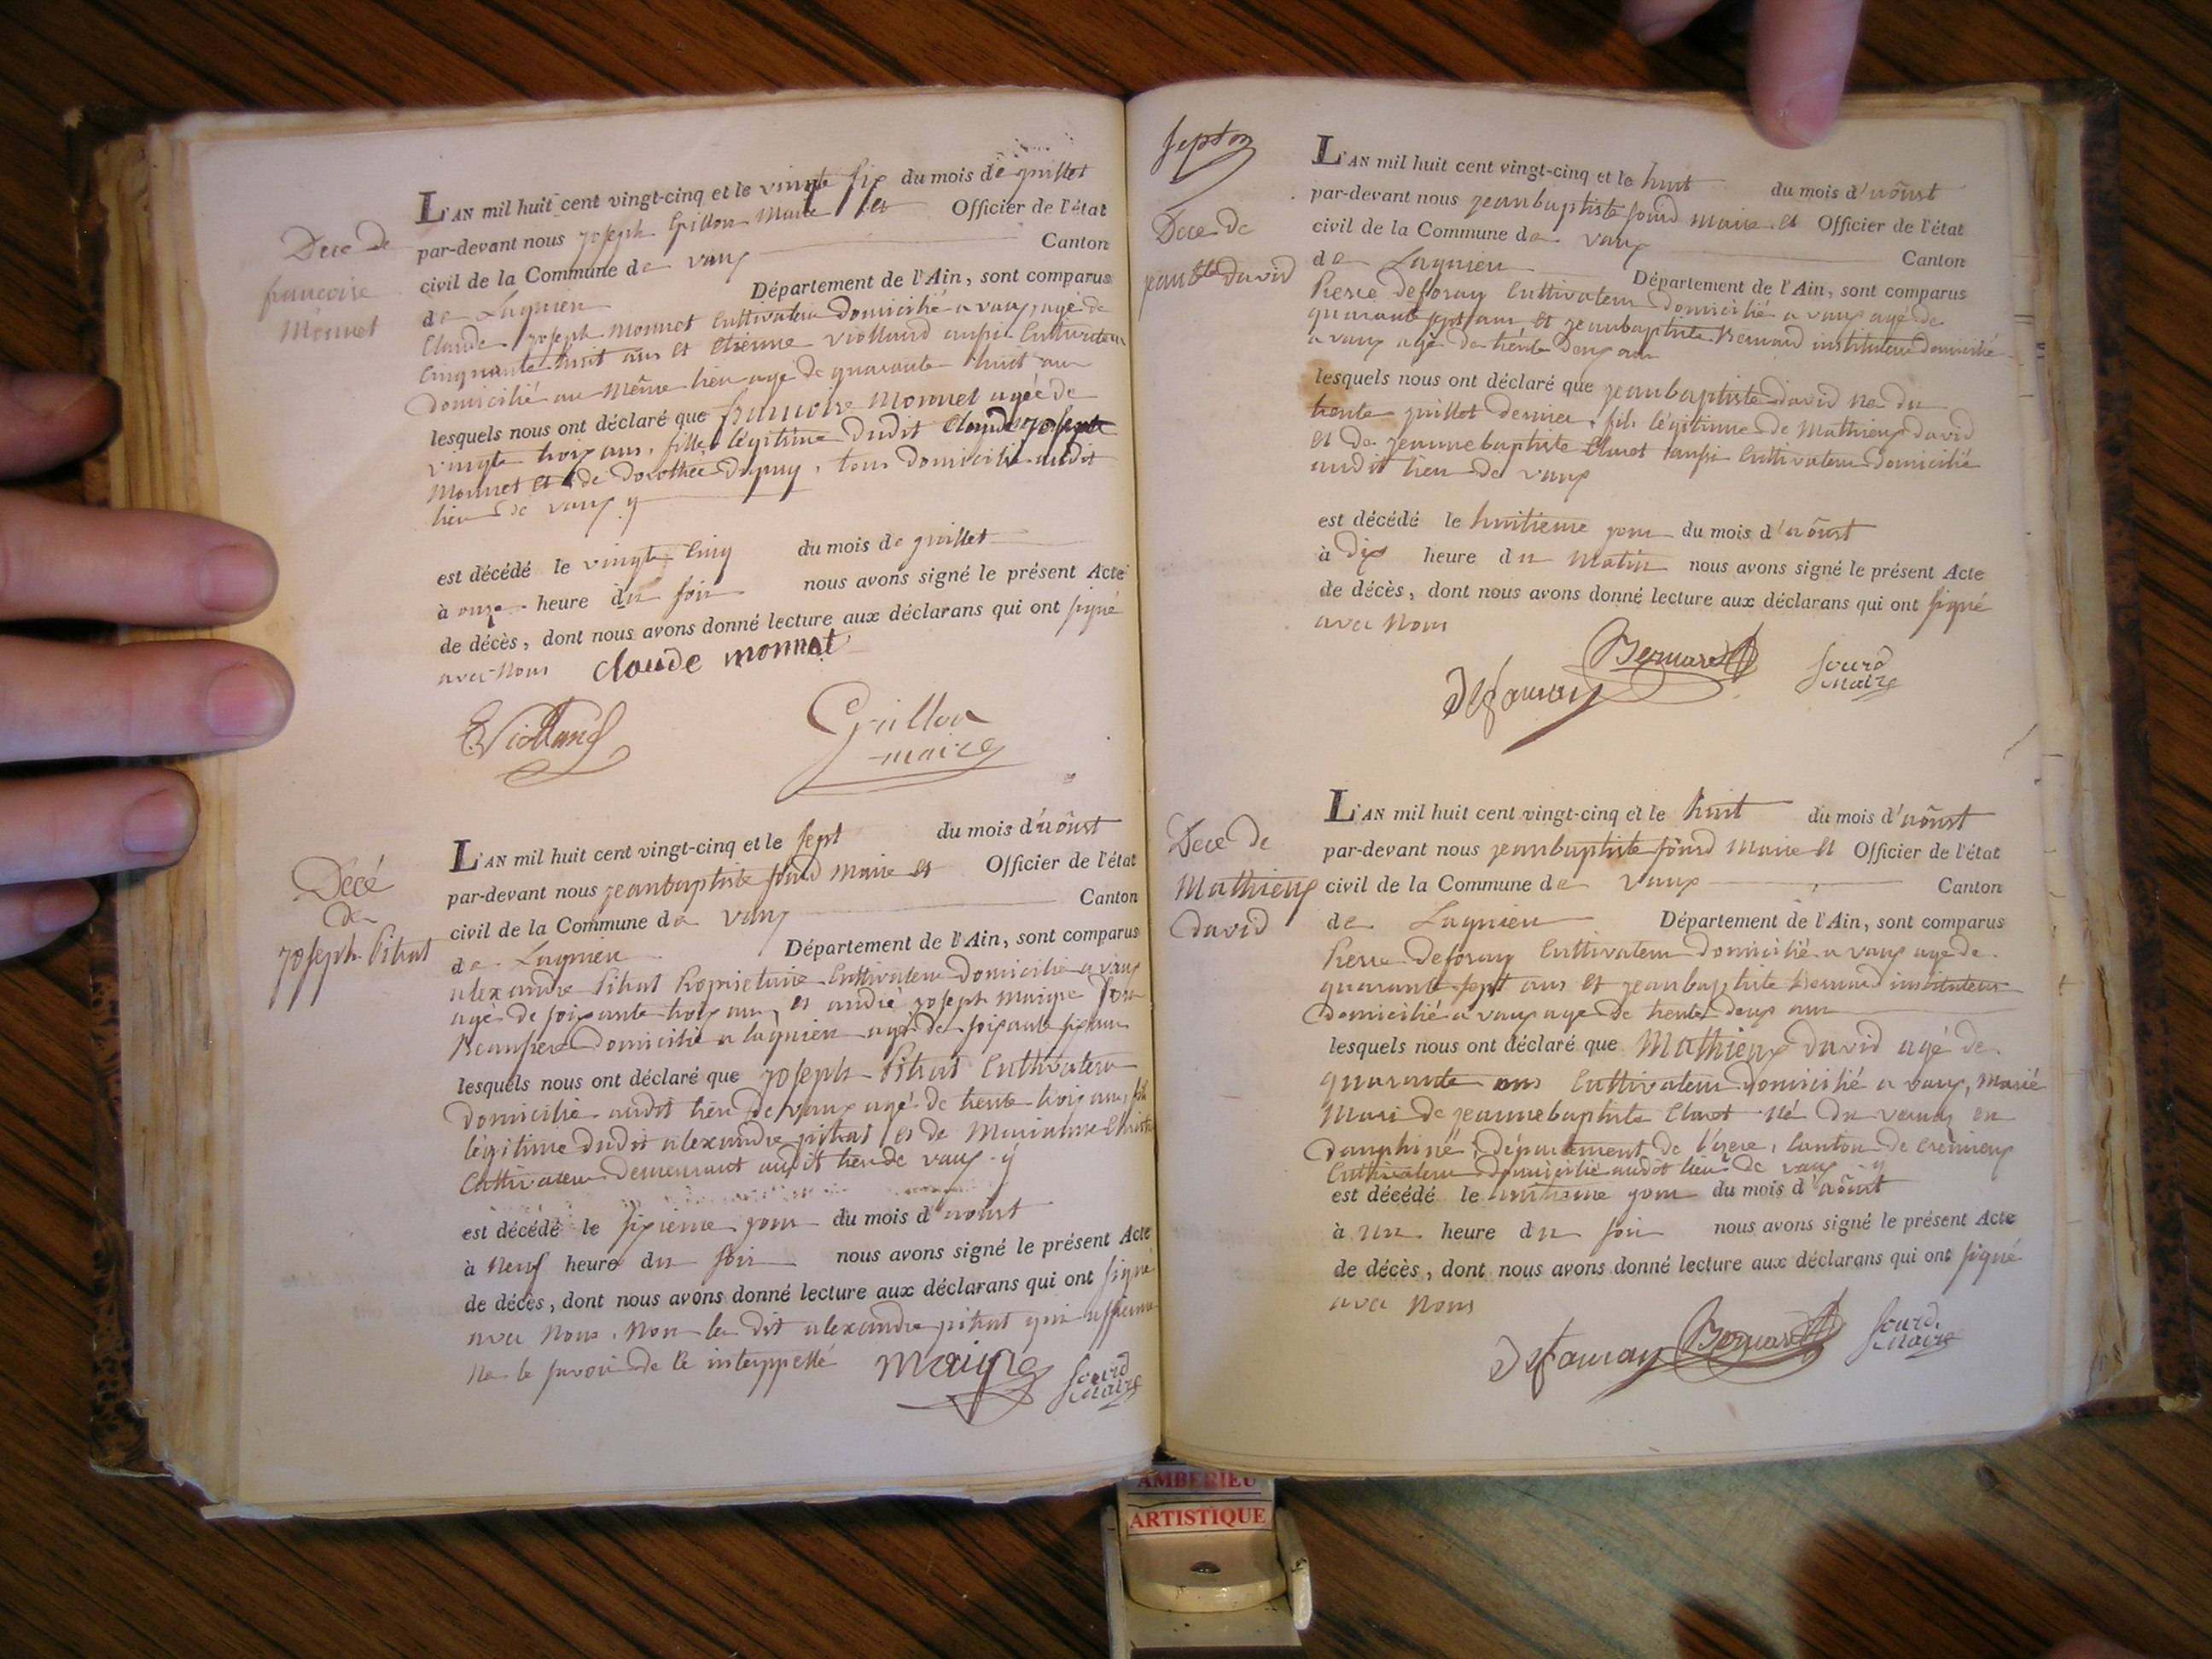 Dece de
francoise
Monnet
L'AN mil huit cent vingt-cinq et le vingte six du mois de juillet
par-devant nous joseph Grillon Maire et Officier de l'état
civil de la Commune de vaux Canton
de Lagnieu Département de l'Ain, sont comparus
Claude joseph Monnet Cultivateur domicilié a vaux, agé de
Cinquante huit ans et etienne violland aussi Cultivateur
domicilié au même lieu agé de quarante huit ans
lesquels nous ont déclaré que francoise Monnet agée de
vingte trois ans, fille légitime dudit Claude joseph
Monnet et de Dorothée Dupuy, tous domicilié audit
lieu de vaux y
est décédé le vingte Cinq du mois de juillet
à onze heure du soir nous avons signé le présent Acte
de décès, dont nous avons donné lecture aux déclarans qui ont signé
avec nous claude monnet
E Violland Grillon
maire
Decé
de
joseph Pitrat
L'AN mil huit cent vingt-cinq et le sept du mois d'aôust
par-devant nous jeanbaptiste sourd maire et Officier de l'état
civil de la Commune de vaux Canton
de Lagnieu Département de l'Ain, sont comparus
alexandre Pitrat Proprietaire Cultivateur domicilié a vaux
agé de soixante trois ans, et andré joseph maigre son
Beaupere domicilié a lagnieu agé de soixante six ans
lesquels nous ont déclaré que joseph Pitrat Cultivateur
domicilié audit lieu de vaux agé de trente trois ans, fils
légitime dudit alexandre pitrat et de Marianne
Cultivateur demeurant audit lieu de vaux y
est décédé le sixieme jour du mois d'aôust
à neuf heure du soir nous avons signé le présent Acte
de décès, dont nous avons donné lecture aux déclarans qui ont signé
avec nous, non le dit alexandre pitrat qui
ne le savoir de ce interppellé maigre sourd
maire
septm
Dece de
jean Bte david
L'AN mil huit cent vingt-cinq et le huit du mois d'aôust
par-devant nous jeanbaptiste sourd maire et Officier de l'état
civil de la Commune de vaux Canton
de Lagnieu Département de l'Ain, sont comparus
Pierre deforay Cultivateur domicilié a vaux agé de
quarante sept ans et jeanbaptiste Bernard instituteur domicilié
a vaux agé de trente deux ans
lesquels nous ont déclaré que jeanbaptiste david né du
trente juillet dernier, fils légitime de Mathieux david
et de jeannebaptiste Claret aussi Cultivateur domicilié
audit lieu de vaux
est décédé le huitieme jour du mois d'aôust
à dix heure du matin nous avons signé le présent Acte
de décès, dont nous avons donné lecture aux déclarans qui ont signé
avec nous
Bernard sourd
maire
Dece de
Mathieux
david
L'AN mil huit cent vingt-cinq et le huit du mois d'aôust
par-devant nous jeanbaptiste sourd maire et Officier de l'état
civil de la Commune de vaux Canton
de Lagnieu Département de l'Ain, sont comparus
Pierre deforay Cultivateur domicilié a vaux agé de
quarante sept ans et jeanbaptiste Bernard instituteur
domicilié a vaux agé de trente deux ans
lesquels nous ont déclaré que Mathieux david agé de
quarante ans Cultivateur domicilié a vaux, marié
Mari de jeannebaptiste Claret né du vernas en
dauphiné, département de l'izere, Canton de Cremieux
Cultivateur domicilié audit lieu de vaux y
est décédé le huitieme jour du mois d'aôust
à un heure du soir nous avons signé le présent Acte
de décès, dont nous avons donné lecture aux déclarans qui ont signé
avec nous
Bernard sourd
maire
AMBERIEU
ARTISTIQUE